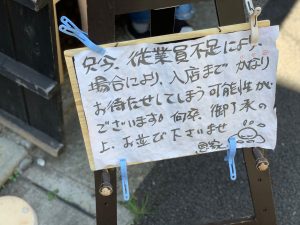 只今、従業員不足により、
場合により、入店まで かなり
お待たせしてしまう 可能性が
ございます。何卒、御了承の
上、お並び下さいませ